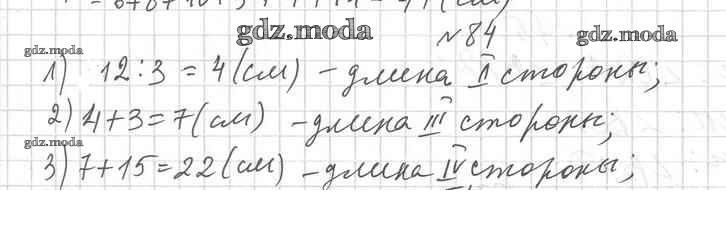 gdz.moda
№84
gdz.moda
gdz.moda
1) 12:3=4(см) – длина II стороны;
2) 4+3=7(см) – длина III стороны;
gdz.moda
3) 7+15=22(см) – длина IV стороны;